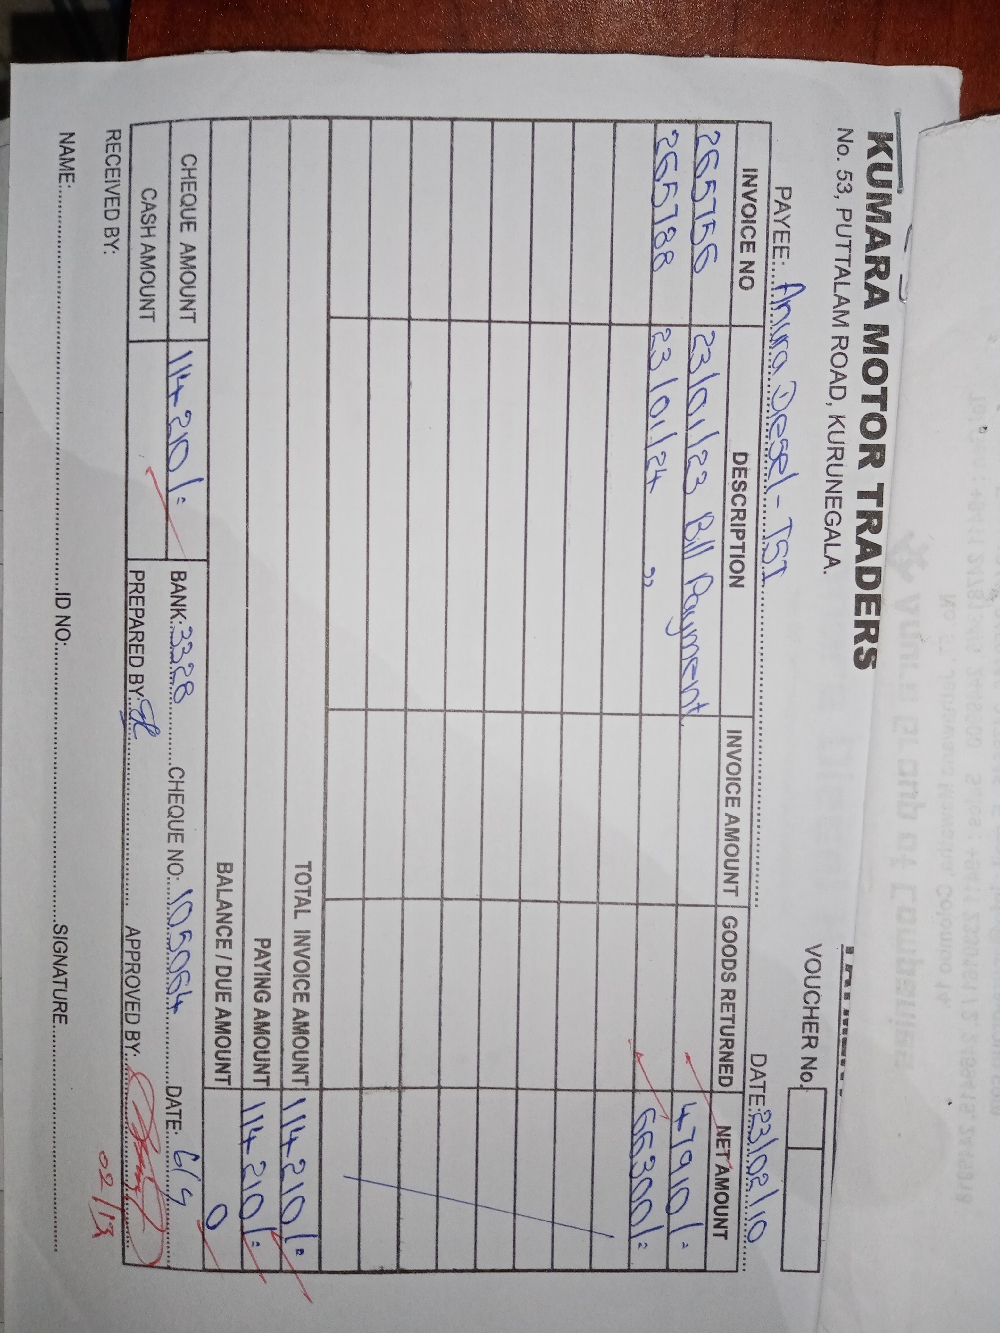 KUMARA MOTOR TRADERS
No. 53, PUTTALAM ROAD, KURUNEGALA.
VOUCHER No.
PAYEE: Anura Diesel - TSI DATE: 23/02/10
INVOICE NO DESCRIPTION INVOICE AMOUNT GOODS RETURNED NET AMOUNT
265756 23/01/23 Bill Payment 47910/=
265788 23/01/24 " 66300/=
TOTAL INVOICE AMOUNT 114210/=
PAYING AMOUNT 114210/=
BALANCE / DUE AMOUNT 0
CHEQUE AMOUNT 114210/= BANK: 3328 CHEQUE NO: 105064 DATE: 6/9
CASH AMOUNT PREPARED BY: APPROVED BY:
02/13
RECEIVED BY:
NAME: ID NO: SIGNATURE